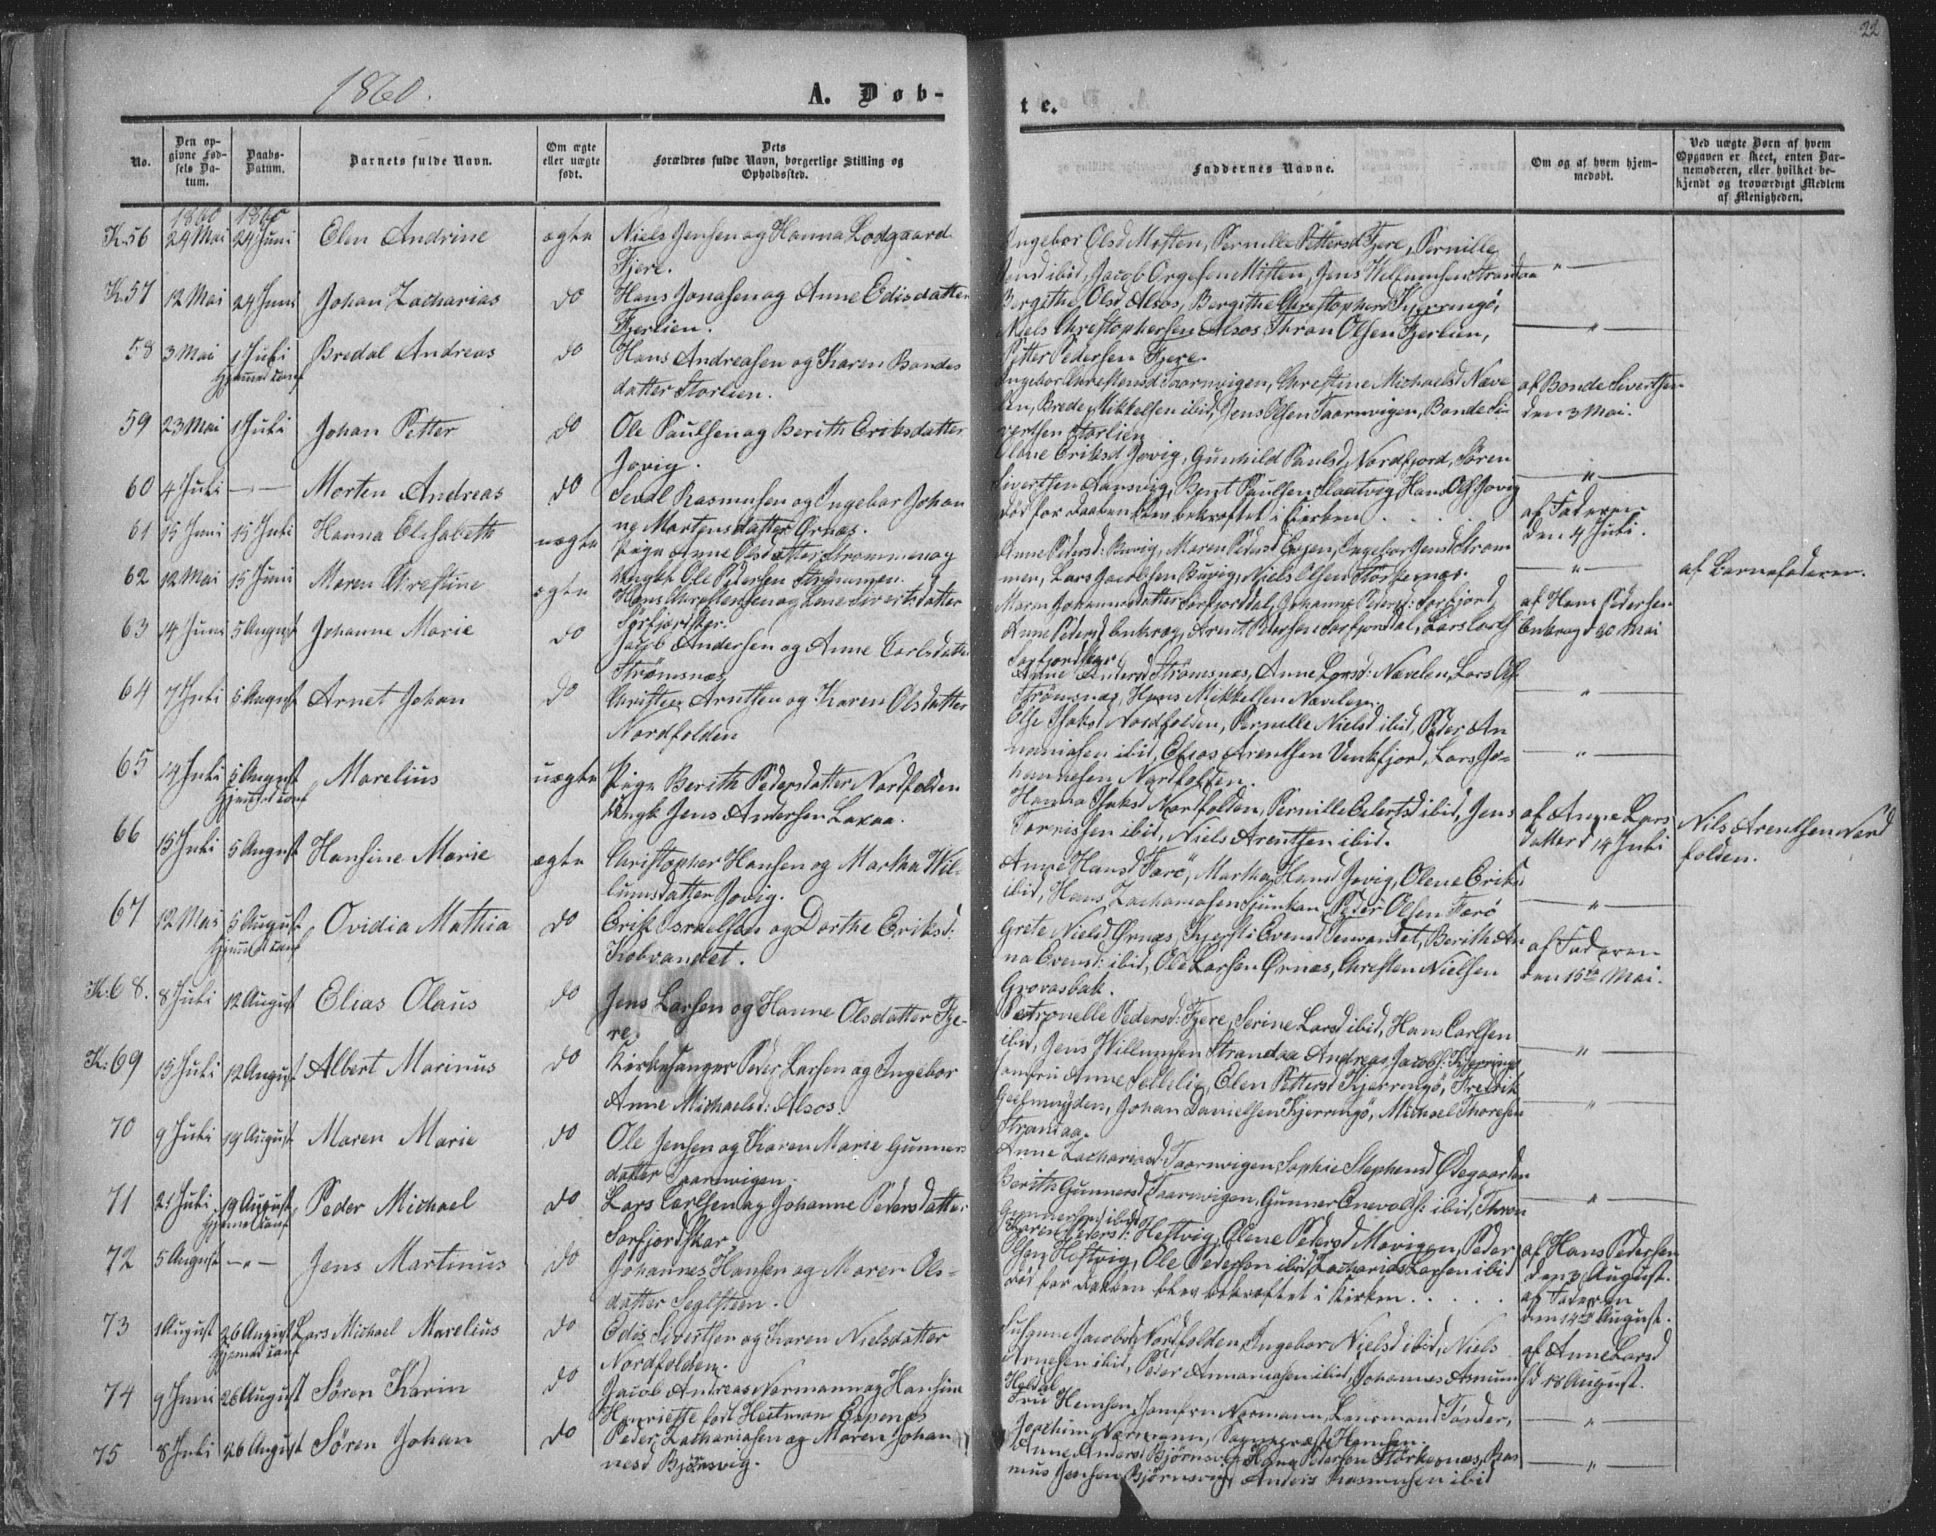 22
1860.
A. Døb-
te.
No.
Den op-
givne Fød-
sels Da-
tum.
Daabs-
Datum.
Barnets fulde Navn.
Om ægte
eller uægte
født.
Dets
Forældres fulde Navn, borgerlige Stilling og
Opholdssted.
Faddernes Navne.
Om og af hvem hjem-
medøbt.
Ved uægte Børn af hvem
Opgaven er skeet, enten Bar-
nemoderen, eller hvilket be-
kjendt og troværdigt Medlem
af Menigheden.
1860 1860
K. 56 24 Mai 24 Juni Elen Andrine ægte Niels Jensen og Hanna Lodgaard
Fjere.
Ingebor Olsd Misten, Pernille Pettersd Fjere, Pernille
Jensd ibid, Jacob Orgesen Misten, Jens Willumsen Strandaa
K. 57 12 Mai 24 Juni Johan Zacharias do Hans Jonasen og Anne Edisdatter
Fjerlien.
Bergithe Olsd Alsos, Bergithe Christophersd Kjerringö,
Niels Christophersen Alsos, Thron Olsen Fjerlien,
Petter Pedersen Fjere.
58 3 Mai 1 Juli Bredal Andreas do Hans Andreasen og Karen Bondes
hjemmedøbt conf
datter Storlien.
Ingebor Christensd Taarnvigen, Christine Michaelsd Næve
len, Brede Mikkelsen ibid, Jens Olsen Taarnvigen, Bonde Si-
vertsen Storlien
af Bonde Sivertsen
den 3 Mai.
59 23 Mai 1 Juli Johan Petter do Ole Paulsen og Berith Eriksdatter
Jovig.
Olave Eriksd Jovig, Gunhild Paulsd Nordfjord, Søren
Sivertsen Aansvig, Bent Paulsen Slaatvig, Hans Ols Jovig
60 4 Juli Morten Andreas do Seval Rasmusen og Ingebor Johan
ne Martensdatter Ørnæs.
død før daaben blev bekræftet i Kirken
af Faderen
den 4 Juli.
61 15 Juni 15 Juli Hanna Elisabeth uægte Pige Anne Olsdatter Strømmen og
Ungk. Ole Pedersen Strømmen.
Anne Pedersd: Buvig, Maren Pedersd Evjen, Ingebor Jensd Strøm
men, Lars Jacobsen Buvig, Niels Olsen Störkernæs.
af Barnefaderen.
62 12 Mai 15 Juni Maren Chrestine ægte Hans Christensen og Lene Sivertsdatter
Sørfjordskar.
Maren Johannesdatter Sørfjorddal, Johanne Pedersd: Sørfjord,
Anne Pedersd Lenkrog, Arent Pedersen Sørfjorddal, Lars Carls
Sørfjordskar
af Hans Pedersen
Lenkrog d 20 Mai
63 14 Juni 5 August Johanne Marie do Jacob Andersen og Anne Carlsdatter
Strømsnæs
Anne Andersd Strømsnæs, Anne Larsd: Nævelen, Lars Ols
Strømsnæs, Hans Mikkelsen Nævelen.
64 7 Juli 5 August Arnet Johan do Christen Arntsen og Karen Olsdatter
Nordfolden
Else Isaksd Nordfolden, Pernille Nielsd ibid, Peder An
naniasen ibid, Elias Arentsen Vinkfjord, Lars Jo-
hannesen Nordfolden.
65 14 Juli 5 August Marelius uægte Pige Berith Pedersdatter Nordfolden
hjemmedøbt conf
Ungk Jens Andersen Laxaa.
Hanna Isaksd Nordfolden, Pernille Eilertsd ibid, Jens
Tørrissen ibid, Niels Arentsen ibid.
af Anne Lars
datter d 14 Juli
Nils Arentsen Nord
folden.
66 15 Juli 5 August Hansine Marie ægte Christopher Hansen og Martha Wil-
lumsdatter Jovig.
Anne Hansd Færö, Martha Hansd Jovig, Olene Eriks
ibid, Hans Zachariasen Tjunkan, Peder Olsen Færö
67 12 Mai 5 August Ovidia Mathia do Erik Israelsen og Dorthe Eriksd:
hjemmedøbt conf
Kobvandet.
Grete Nielsd Ørnæs, Kjersti Evensd Tenvandet, Berith An
na Evensd: ibid, Ole Larsen Ørnæs, Christen Nielsen
Grovasbak.
af Faderen
den 15de Mai.
K. 68. 8 Juli 12 August Elias Olaus do Jens Larsen og Hanne Olsdatter Fje-
re.
Petronelle Pedersd: Fjere, Serine Larsd ibid, Hans Carlsen
ibid, Jens Willumsen Strandaa, Andreas Jacobs: Kjerringö
K: 69 15 Juli 12 August Albert Marinus do Kirkesanger Peder Larsen og Ingebor
Anne Michaelsd: Alsos.
Jomfru Anne Sellelie, Elen Pettersd Kjerringö, Fredrik
Geitmøyden, Johan Danielsen Kjerringö, Michael Thoresen
Strandaa.
70 9 Juli 19 August Maren Marie do Ole Jensen og Karen Marie Gunner
datter Taarnvigen.
Anne Zachariasd Taarnvigen, Sophie Stephensd Ødegaarden
Berith Gunnersd Taarnvigen, Gunner Enevolds: ibid, Thron
Gundersen ibid
71 21 Juli 19 August Peder Michael do Lars Carlsen og Johanne Pedersdatter
hjemmedøbt conf
Sørfjordskar.
Karen Pedersd: Heftvig, Olene Pedersd Movigen, Peder
Olsen Heftvig, Ole Pedersen ibid, Zacharias Larsen ibid
af Hans Pedersen
den 3 August.
72 5 August Jens Martinus do Johannes Hansen og Maren Ols-
datter Seglsteen.
død før daaben blev bekræftet i Kirken
af Faderen
den 14de August.
73 1 August 26 August Lars Michael Marelius do Edis Sivertsen og Karen Nielsdatter
hjemmedøbt conf
Nordfolden.
Susanne Jacobsd Nordfolden, Ingebor Nielsd ibid, Niels
Arnesen ibid, Peder Annaniasen ibid, Johannes Amund
Holdal
af Anne Larsd
d 18 August.
74 9 Juni 26 August Søren Karin do Jacob Andreas Normann og Hansine
Henriette født Heitman Espenæs
Fru Hemsen, Jomfru Normann, Lensmand Tønder,
Joachim Normann, Sognepræst Hemsen.
75 8 Juli 26 August Søren Johan do Peder Zachariasen og Maren Johan
nesd Bjørnsvig.
Anne Andersd Bjørnsvig, Hans Petersen Störkersnæs, Ras
mus Jensen Bjørnsvig, Anders Rasmusen ibid